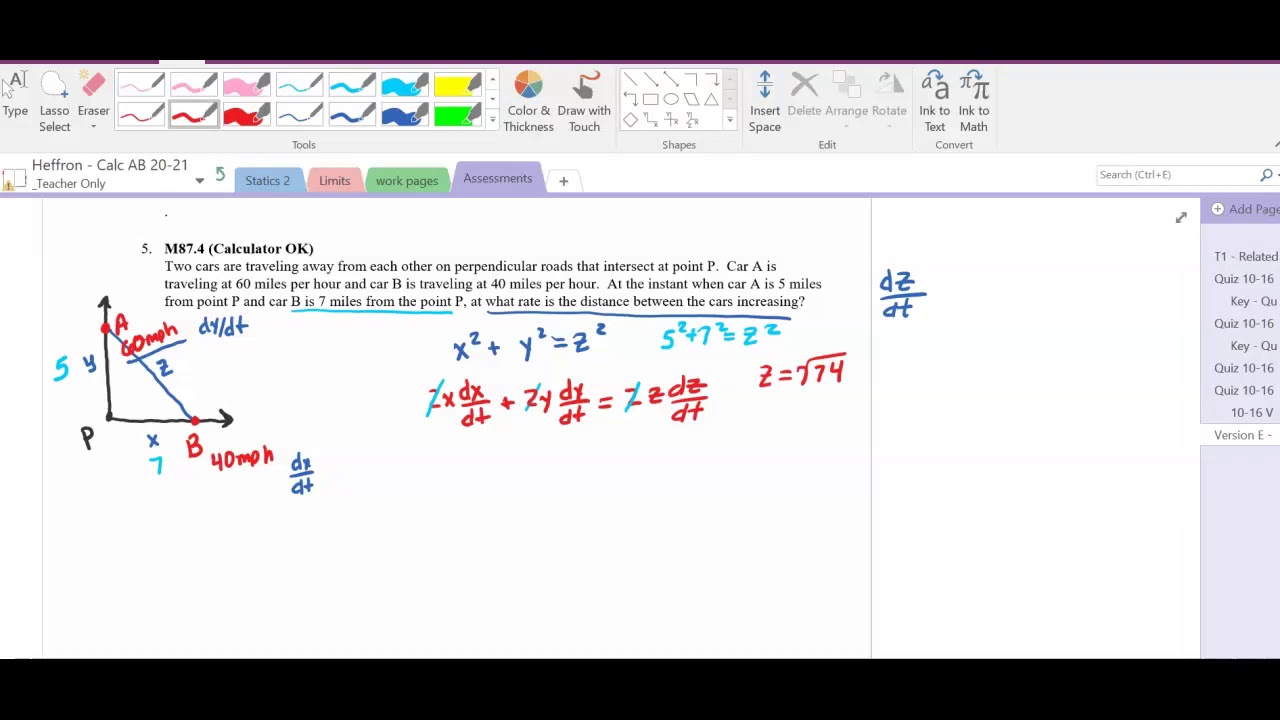 Type
Lasso Select
Eraser
Color & Thickness
Draw with Touch
Insert Space
Delete
Arrange
Rotate
Ink to Text
Ink to Math
Tools
Shapes
Edit
Convert
Heffron - Calc AB 20-21
_Teacher Only
Statics 2
Limits
work pages
Assessments
+
Search (Ctrl+E)
Add Page
T1 - Related
Quiz 10-16
Key - Qu
Quiz 10-16
Key - Qu
Quiz 10-16
Quiz 10-16
10-16 V
Version E -
5. M87.4 (Calculator OK)
Two cars are traveling away from each other on perpendicular roads that intersect at point P. Car A is
traveling at 60 miles per hour and car B is traveling at 40 miles per hour. At the instant when car A is 5 miles
from point P and car B is 7 miles from the point P, at what rate is the distance between the cars increasing?
dz/dt
A
60mph
dy/dt
5
y
z
P
x
7
B
40mph
dx/dt
x² + y² = z²
5²+7²=z²
2x dx/dt + 2y dy/dt = 2z dz/dt
z = √74